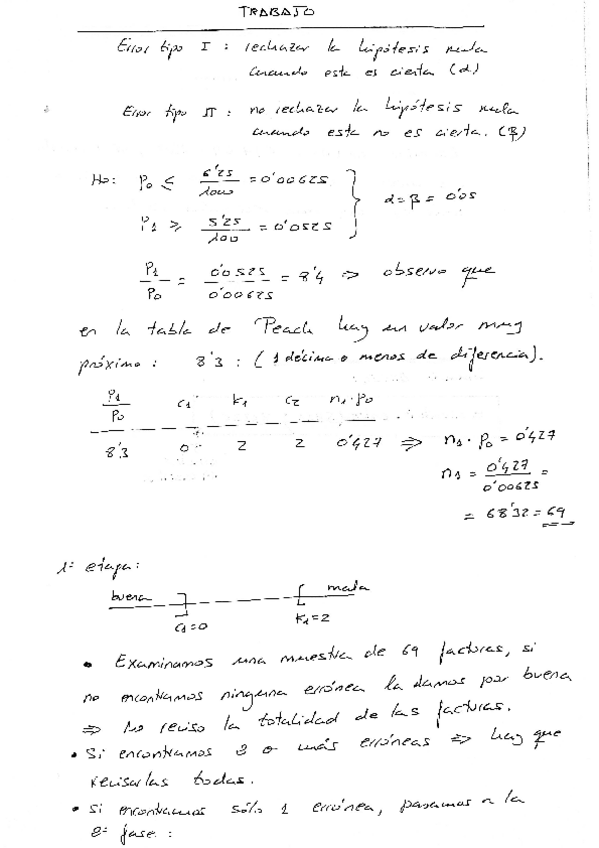 TRABAJO
Error tipo I : rechazar la hipótesis nula
cuando esta es cierta (α)
Error tipo II : no rechazar la hipótesis nula
cuando esta no es cierta. (β)
Ho: P0 ≤ 6'25/1000 = 0'00625
α = β = 0'05
P1 ≥ 5'25/100 = 0'0525
P1/P0 = 0'0525/0'00625 = 8'4 => observo que
en la tabla de Peach hay un valor muy
próximo : 8'3 : ( 1 décima o menos de diferencia).
P1/P0 c1 k1 c2 n1·p0
8'3 0 2 2 0'427 => n1 · p0 = 0'427
n1 = 0'427/0'00625 =
= 68'32 = 69
1ª etapa:
buena mala
c1=0 k1=2
• Examinamos una muestra de 69 facturas, si
no encontramos ninguna errónea la damos por buena
=> No reviso la totalidad de las facturas.
• Si encontramos 2 o más erróneas => hay que
revisarlas todas.
• Si encontramos sólo 1 errónea, pasamos a la
2ª fase :